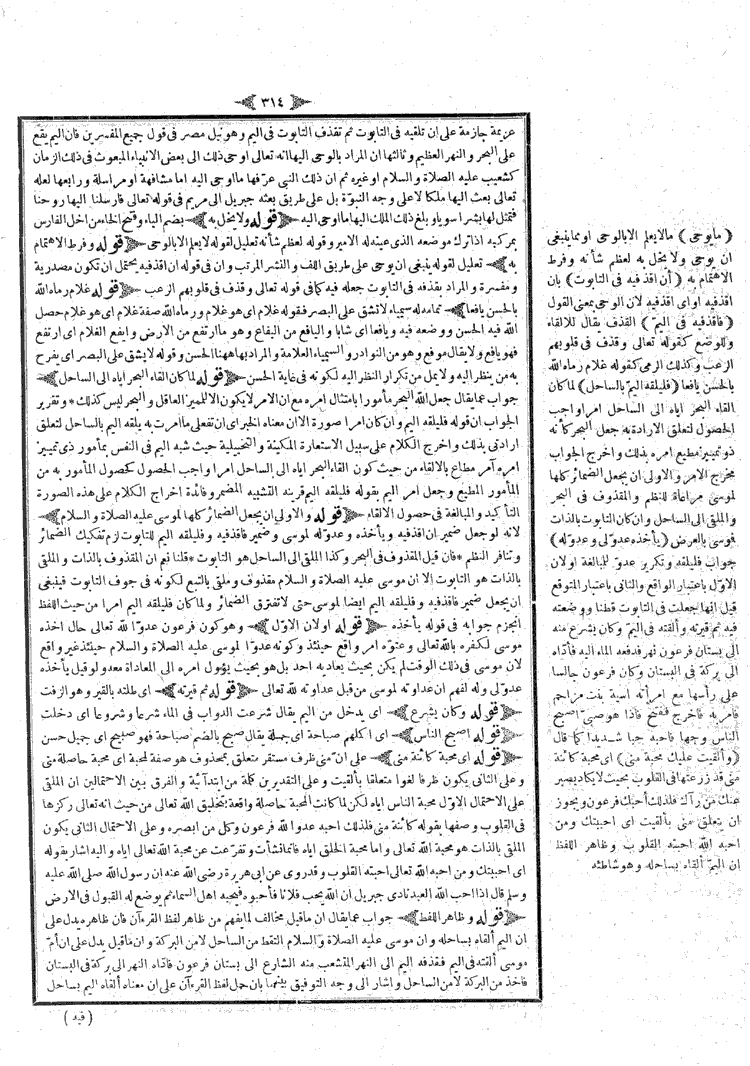 ﴿ ٣١٤ ﴾
عزيمة جازمة على ان تلقيه فى التابوت ثم تقذف التابوت فى اليم وهو نيل مصر فى قول جميع المفسرين فان اليم يقع
على البحر والنهر العظيم وثالثها ان المراد بالوحى اليها انه تعالى اوحى ذلك الى بعض الانبياء المبعوث فى ذلك الزمان
كشعيب عليه الصلاة والسلام او غيره ثم ان ذلك النبى عرفها ما اوحى اليه اما مشافهة او مراسلة ورابعها لعله
تعالى بعث اليها ملكا لا على وجه النبوة بل على طريق بعثه جبريل الى مريم فى قوله تعالى فارسلنا اليها روحنا
فتمثل لها بشرا سويا وبلغ ذلك الملك اليها ما اوحى اليه ﴿ قوله ولا يخل به ﴾ بضم الياء وفتح الخاء من اخل الفارس
بمركبه اذا ترك موضعه الذى عينه له الامير وقوله لعظم شأنه تعليل لقوله لا يعلم الا بالوحى ﴿ قوله وفرط الاهتمام
به ﴾ تعليل لقوله ينبغى ان يوحى على طريق اللف والنشر المرتب وان فى قوله ان اقذفيه يحتمل ان تكون مصدرية
ومفسرة والمراد بقذفه فى التابوت جعله فيه كما فى قوله تعالى وقذف فى قلوبهم الرعب ﴿ قوله غلام رماه الله
بالحسن يافعا ﴾ تمامه له سيمياء لا تشق على البصر فقوله غلام اى هو غلام ورماه الله صفة غلام اى هو غلام حصل
الله فيه الحسن ووضعه فيه ويافعا اى شابا واليافع من اليفاع وهو ما ارتفع من الارض وايفع الغلام اى ارتفع
فهو يافع ولا يقال موفع وهو من النوادر والسيمياء العلامة والمراد بها ههنا الحسن وقوله لا يشق على البصر اى يفرح
به من ينظر اليه ولا يمل من تكرار النظر اليه لكونه فى غاية الحسن ﴿ قوله لما كان القاء البحر اياه الى الساحل ﴾
جواب عما يقال جعل الله البحر مأمورا بامتثال امره مع ان الامر لا يكون الا للمميز العاقل والبحر ليس كذلك * وتقرير
الجواب ان قوله فليلقه اليم وان كان امرا صورة الا ان معناه الخبر اى تفعلى ما امرت به يلقه اليم بالساحل لتعلق
ارادتى بذلك واخرج الكلام على سبيل الاستعارة المكنية والتخييلية حيث شبه اليم فى النفس بمأمور ذى تمييز
امره آمر مطاع بالالقاء من حيث كون القاء البحر اياه الى الساحل امرا واجب الحصول كحصول المأمور به من
المأمور المطيع وجعل امر اليم بقوله فليلقه اليم قرينة التشبيه المضمر وفائدة اخراج الكلام على هذه الصورة
التأكيد والمبالغة فى حصول الالقاء ﴿ قوله والاولى ان يجعل الضمائر كلها لموسى عليه الصلاة والسلام ﴾
لانه لو جعل ضمير ان اقذفيه ويأخذه وعدو له لموسى وضمير فاقذفيه وفليلقه اليم للتابوت لزم تفكيك الضمائر
وتنافر النظم * فان قيل المقذوف فى البحر وكذا الملقى الى الساحل هو التابوت * قلنا نعم ان المقذوف بالذات والملقى
بالذات هو التابوت الا ان موسى عليه الصلاة والسلام مقذوف وملقى بالتبع لكونه فى جوف التابوت فينبغى
ان يجعل ضمير فاقذفيه وفليلقه اليم ايضا لموسى حتى لا تفترق الضمائر ولما كان فليلقه اليم امرا من حيث اللفظ
انجزم جوابه فى قوله يأخذه ﴿ قوله اولان الاول ﴾ وهو كون فرعون عدوا لله تعالى حال اخذه
لموسى لكفره بالله تعالى وعتوه امر واقع حينئذ وكونه عدوا لموسى عليه الصلاة والسلام حينئذ غير واقع
لان موسى فى ذلك الوقت لم يكن بحيث يعاديه احد بل هو بحيث يؤول امره الى المعاداة معه ولو قيل يأخذه
عدو لى وله لفهم ان عداوته لموسى من قبل عداوته لله تعالى ﴿ قوله ثم قيرته ﴾ اى طلته بالقير وهو الزفت
﴿ قوله وكان يشرع ﴾ اى يدخل من اليم يقال شرعت الدواب فى الماء شرعا وشروعا اى دخلت
﴿ قوله اصبح الناس ﴾ اى اكلهم صباحة اى جملة يقال صبح بالضم صباحة فهو صبيح اى جميل حسن
﴿ قوله اى محبة كائنة منى ﴾ على ان منى ظرف مستقر متعلق بمحذوف هو صفة لمحبة اى محبة حاصلة منى
وعلى الثانى يكون ظرفا لغوا متعلقا بألقيت وعلى التقديرين كلمة من ابتدآئية والفرق بين الاحتمالين ان الملقى
على الاحتمال الاول محبة الناس اياه لكن لما كانت المحبة حاصلة واقعة بتخليق الله تعالى من حيث انه تعالى ركزها
فى القلوب وصفها بقوله كائنة منى فلذلك احبه عدوا لله فرعون وكل من ابصره وعلى الاحتمال الثانى يكون
الملقى بالذات هو محبة الله تعالى واما محبة الخلق اياه فانما نشأت وتفرعت عن محبة الله تعالى اياه واليه اشار بقوله
اى احببتك ومن احبه الله تعالى احبته القلوب وقد روى عن ابى هريرة رضى الله عنه ان رسول الله صلى الله عليه
وسلم قال اذا احب الله العبد نادى جبريل ان الله يحب فلانا فأحبوه فيحبه اهل السماء ثم يوضع له القبول فى الارض
﴿ قوله وظاهر اللفظ ﴾ جواب عما يقال ان ما قيل مخالف لما يفهم من ظاهر لفظ القرءآن فان ظاهره يدل على
ان اليم ألقاه بساحله وان موسى عليه الصلاة والسلام التقط من الساحل لا من البركة وان ما قيل يدل على ان ام
موسى ألقته فى اليم فقذفه اليم الى النهر المنشعب منه الشارع الى بستان فرعون فأداه النهر الى بركة فى البستان
فاخذ من البركة لا من الساحل واشار الى وجه التوفيق بينهما بان حمل لفظ القرءآن على ان معناه ألقاه اليم بساحل
( فيه )
( ما يوحى ) ما لا يعلم الا بالوحى او مما ينبغى
ان يوحى ولا يخل به لعظم شأنه وفرط
الاهتمام به ( أن اقذفيه فى التابوت ) بان
اقذفيه او اى اقذفيه لان الوحى بمعنى القول
( فاقذفيه فى اليم ) القذف يقال للالقاء
وللوضع كقوله تعالى وقذف فى قلوبهم
الرعب وكذلك الرمى كقوله غلام رماه الله
بالحسن يافعا ( فليلقه اليم بالساحل ) لما كان
القاء البحر اياه الى الساحل امرا واجب
الحصول لتعلق الارادة به جعل البحر كأنه
ذو تمييز مطيع امره بذلك واخرج الجواب
مخرج الامر والاولى ان يجعل الضمائر كلها
لموسى مراعاة للنظم والمقذوف فى البحر
والملقى الى الساحل وان كان التابوت بالذات
فموسى بالعرض ( يأخذه عدو لى وعدو له )
جواب فليلقه وتكرير عدو للمبالغة اولان
الاول باعتبار الواقع والثانى باعتبار المتوقع
قيل انها جعلت فى التابوت قطنا ووضعته
فيه ثم قيرته وألقته فى اليم وكان يشرع منه
الى بستان فرعون نهر فدفعه الماء اليه فأداه
الى بركة فى البستان وكان فرعون جالسا
على رأسها مع امرأته آسية بنت مزاحم
فامر به فاخرج ففتح فاذا هو صبى اصبح
الناس وجها فاحبه حبا شديدا كما قال
( وألقيت عليك محبة منى ) اى محبة كائنة
منى قد زرعتها فى القلوب بحيث لا يكاد يصبر
عنك من رآك فلذلك أحبك فرعون ويجوز
ان يتعلق منى بألقيت اى احببتك ومن
احبه الله احبته القلوب وظاهر اللفظ
ان اليم ألقاه بساحله وهو شاطئه